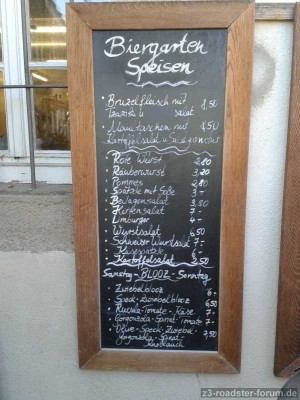 Biergarten
Speisen
Bruzelfleisch mit
Tzaziki u salat
Maultaschen mit
Kartoffelsalat u
Rote Wurst 2,80
Räuberwurst 3.20
Pommes
Spätzle mit Soße 3,-
Beilagensalat 3.50
Hirtensalat 7,-
Limburger 4,-
Wurstsalat 6,50
Schweizer Wurstsalat 7,-
Käsespätzle
Kartoffelsalat 2,50
Samstag - BLOOZ - Sonntag
Zwiebelblooz 6,-
Speck-Zwiebelblooz 6,50
Rucola-Tomate-Käse 7,-
Gorgonzola-Spinat-Tomate 7,-
Olive-Speck-Zwiebel- 7,50
Gorgonzola-Spinat-
Knoblauch
z3-roadster-forum.de